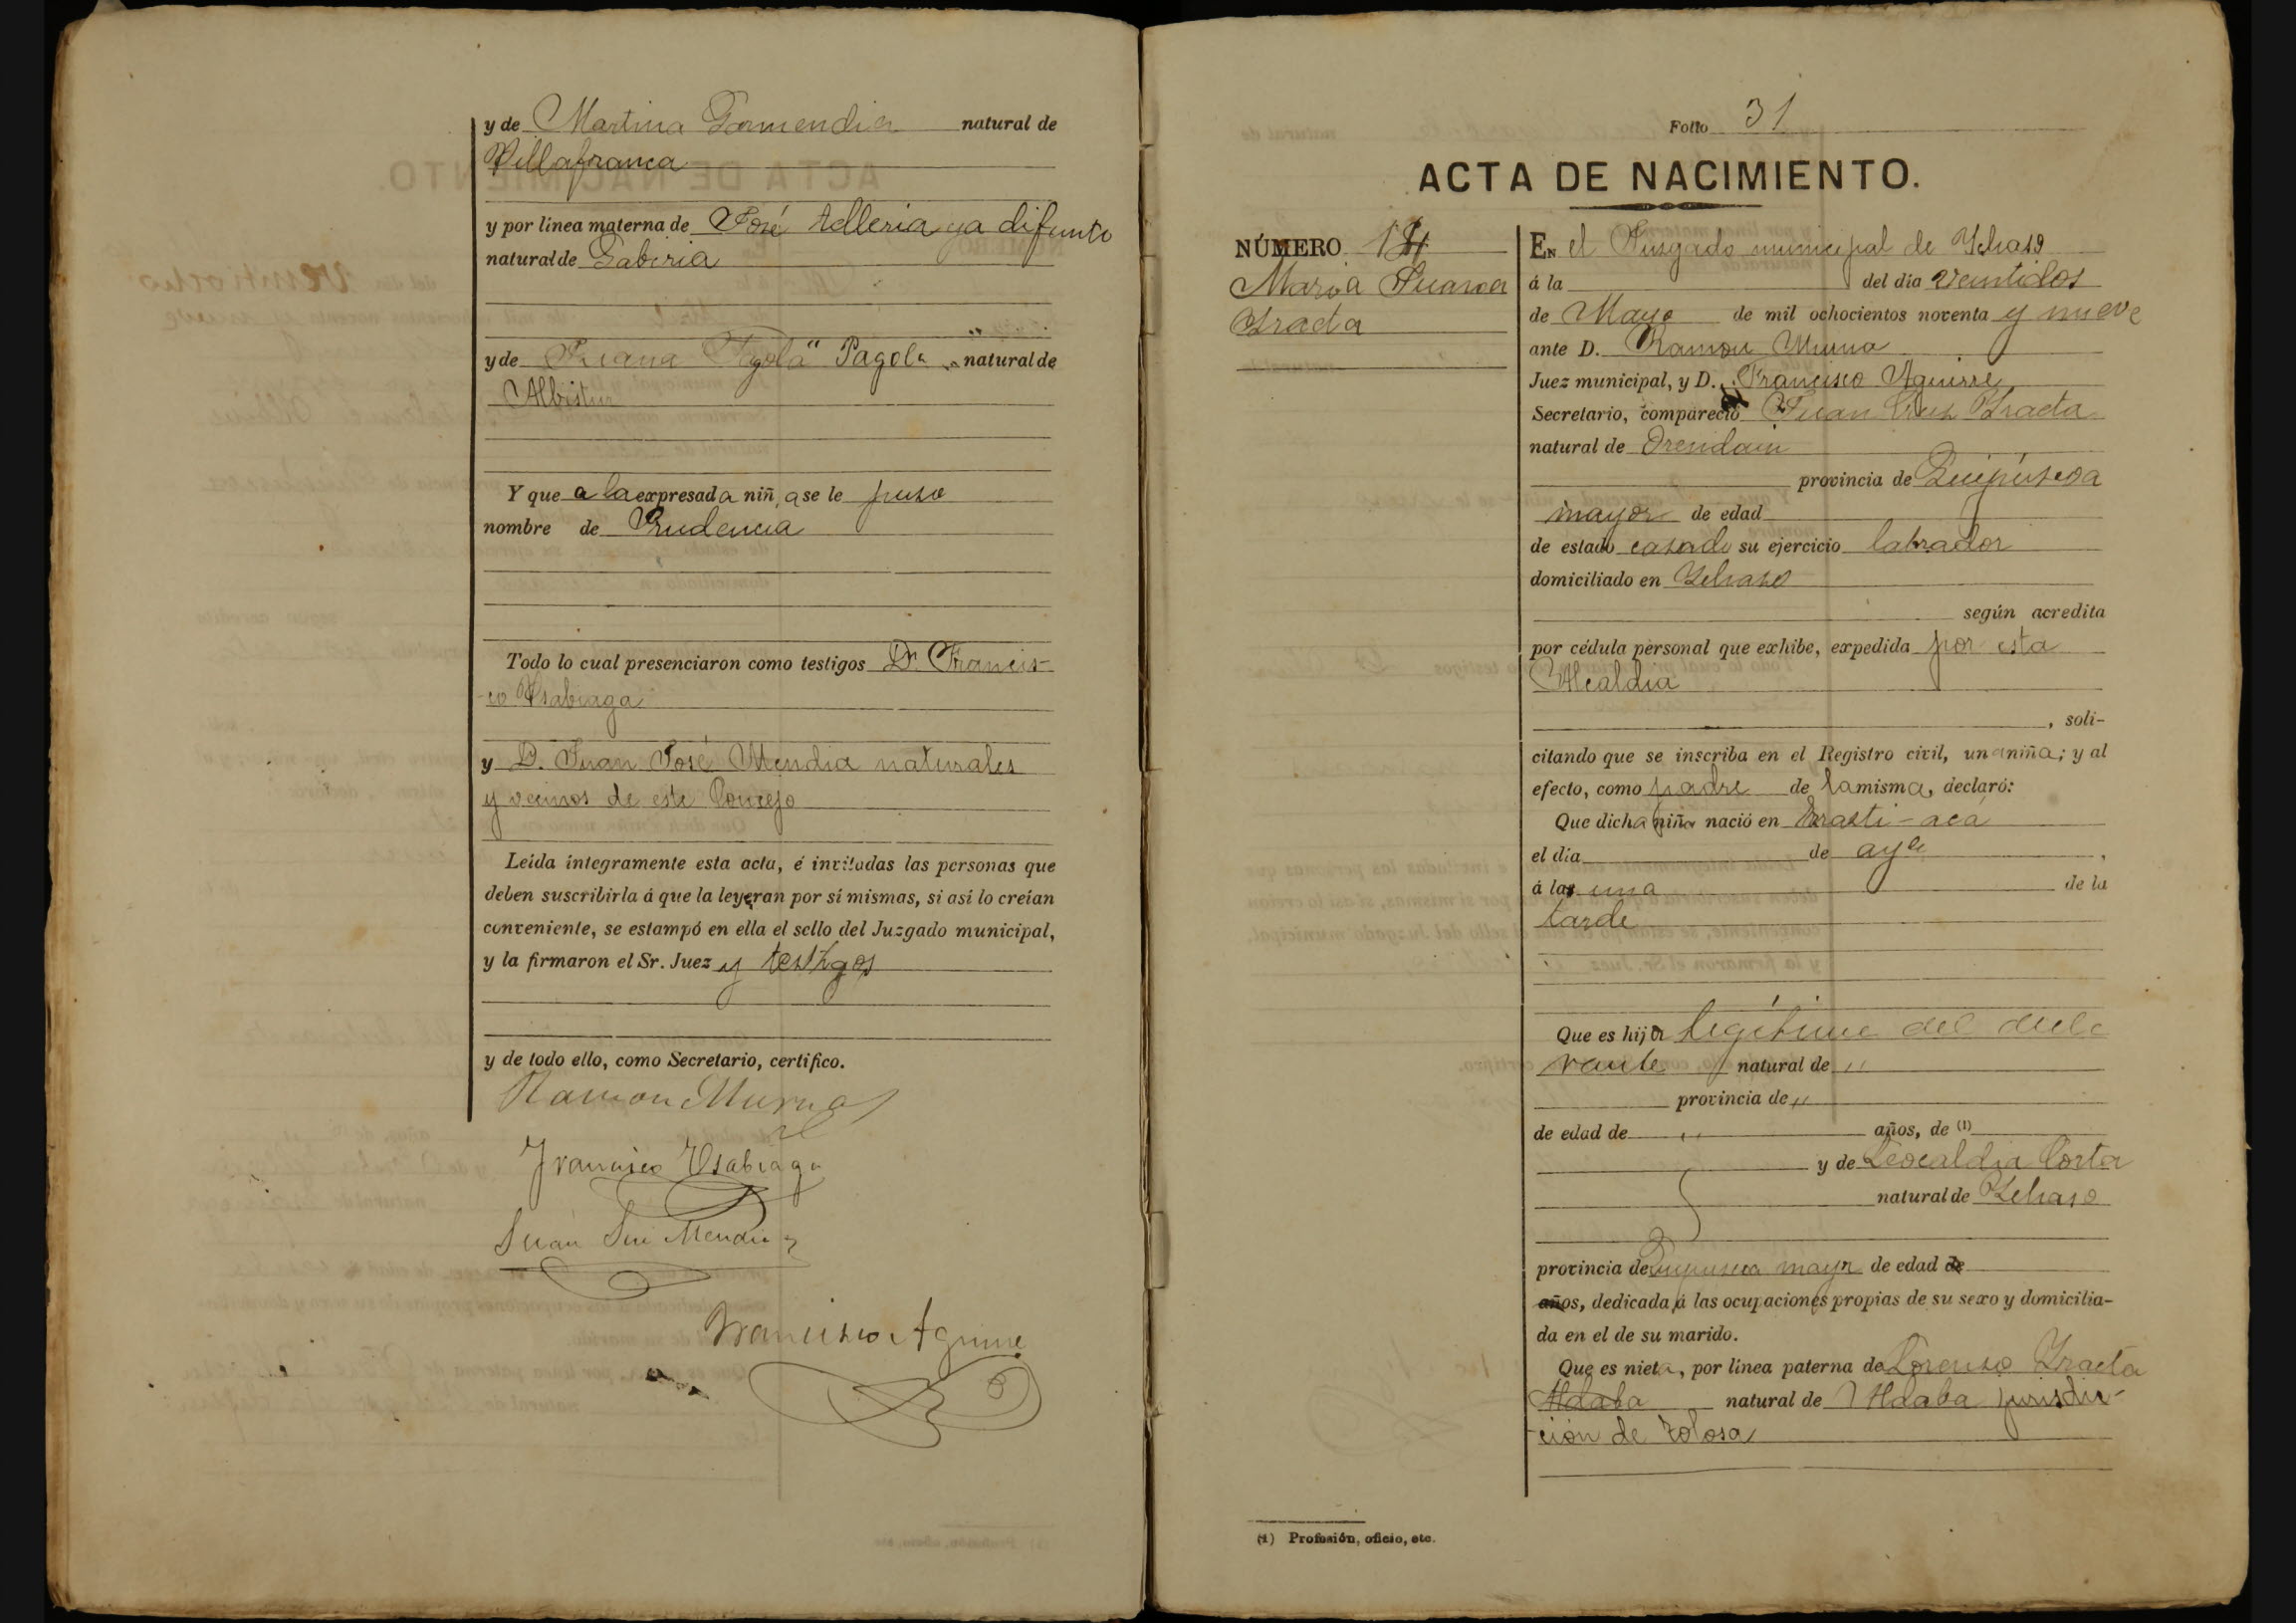 y de Martina Garmendia natural de
Villafranca
y por línea materna de José telleria ya difunto
natural de Gabiria
y de Juana Pagola" Pagola natural de
Albistur
Y que a la expresada niña se le puso
nombre de Prudencia
Todo lo cual presenciaron como testigos D. Francis-
-co Ysabiaga
y D. Juan José Mendia naturales
y vecinos de este Concejo
Leída íntegramente esta acta, é invitadas las personas que
deben suscribirla á que la leyeran por sí mismas, si así lo creían
conveniente, se estampó en ella el sello del Juzgado municipal,
y la firmaron el Sr. Juez y testigos
y de todo ello, como Secretario, certifico.
Ramon Murua
Francisco Ysabiaga
Juan José Mendia
Francisco Aguirre
Folio 31
ACTA DE NACIMIENTO.
NÚMERO
Maria Juana
Yraeta
EN el Jusgado municipal de Ychaso
á la del día veintidos
de Mayo de mil ochocientos noventa y nueve
ante D. Ramon Murua
Juez municipal, y D. Francisco Aguirre
Secretario, compareció Juan Cruz Yraeta
natural de Orendain
provincia de Guipúscoa
mayor de edad
de estado casado su ejercicio labrador
domiciliado en Ychaso
según acredita
por cédula personal que exhibe, expedida por esta
Alcaldia
, soli-
citando que se inscriba en el Registro civil, una niña; y al
efecto, como padre de la misma, declaró:
Que dicha niña nació en Errasti-aca
el día de aye ,
á las una de la
tarde
Que es hija legitima del decla
rante natural de "
provincia de "
de edad de " años, de (1)
y de Leocaldia Corta
natural de Ychaso
provincia de Guipuscoa mayor de edad de
años, dedicada á las ocupaciones propias de su sexo y domicilia-
da en el de su marido.
Que es nieta, por línea paterna de Lorenso Yraeta
Aldaba natural de Aldaba jurisdic-
-ción de Tolosa
(1) Profesión, oficio, etc.